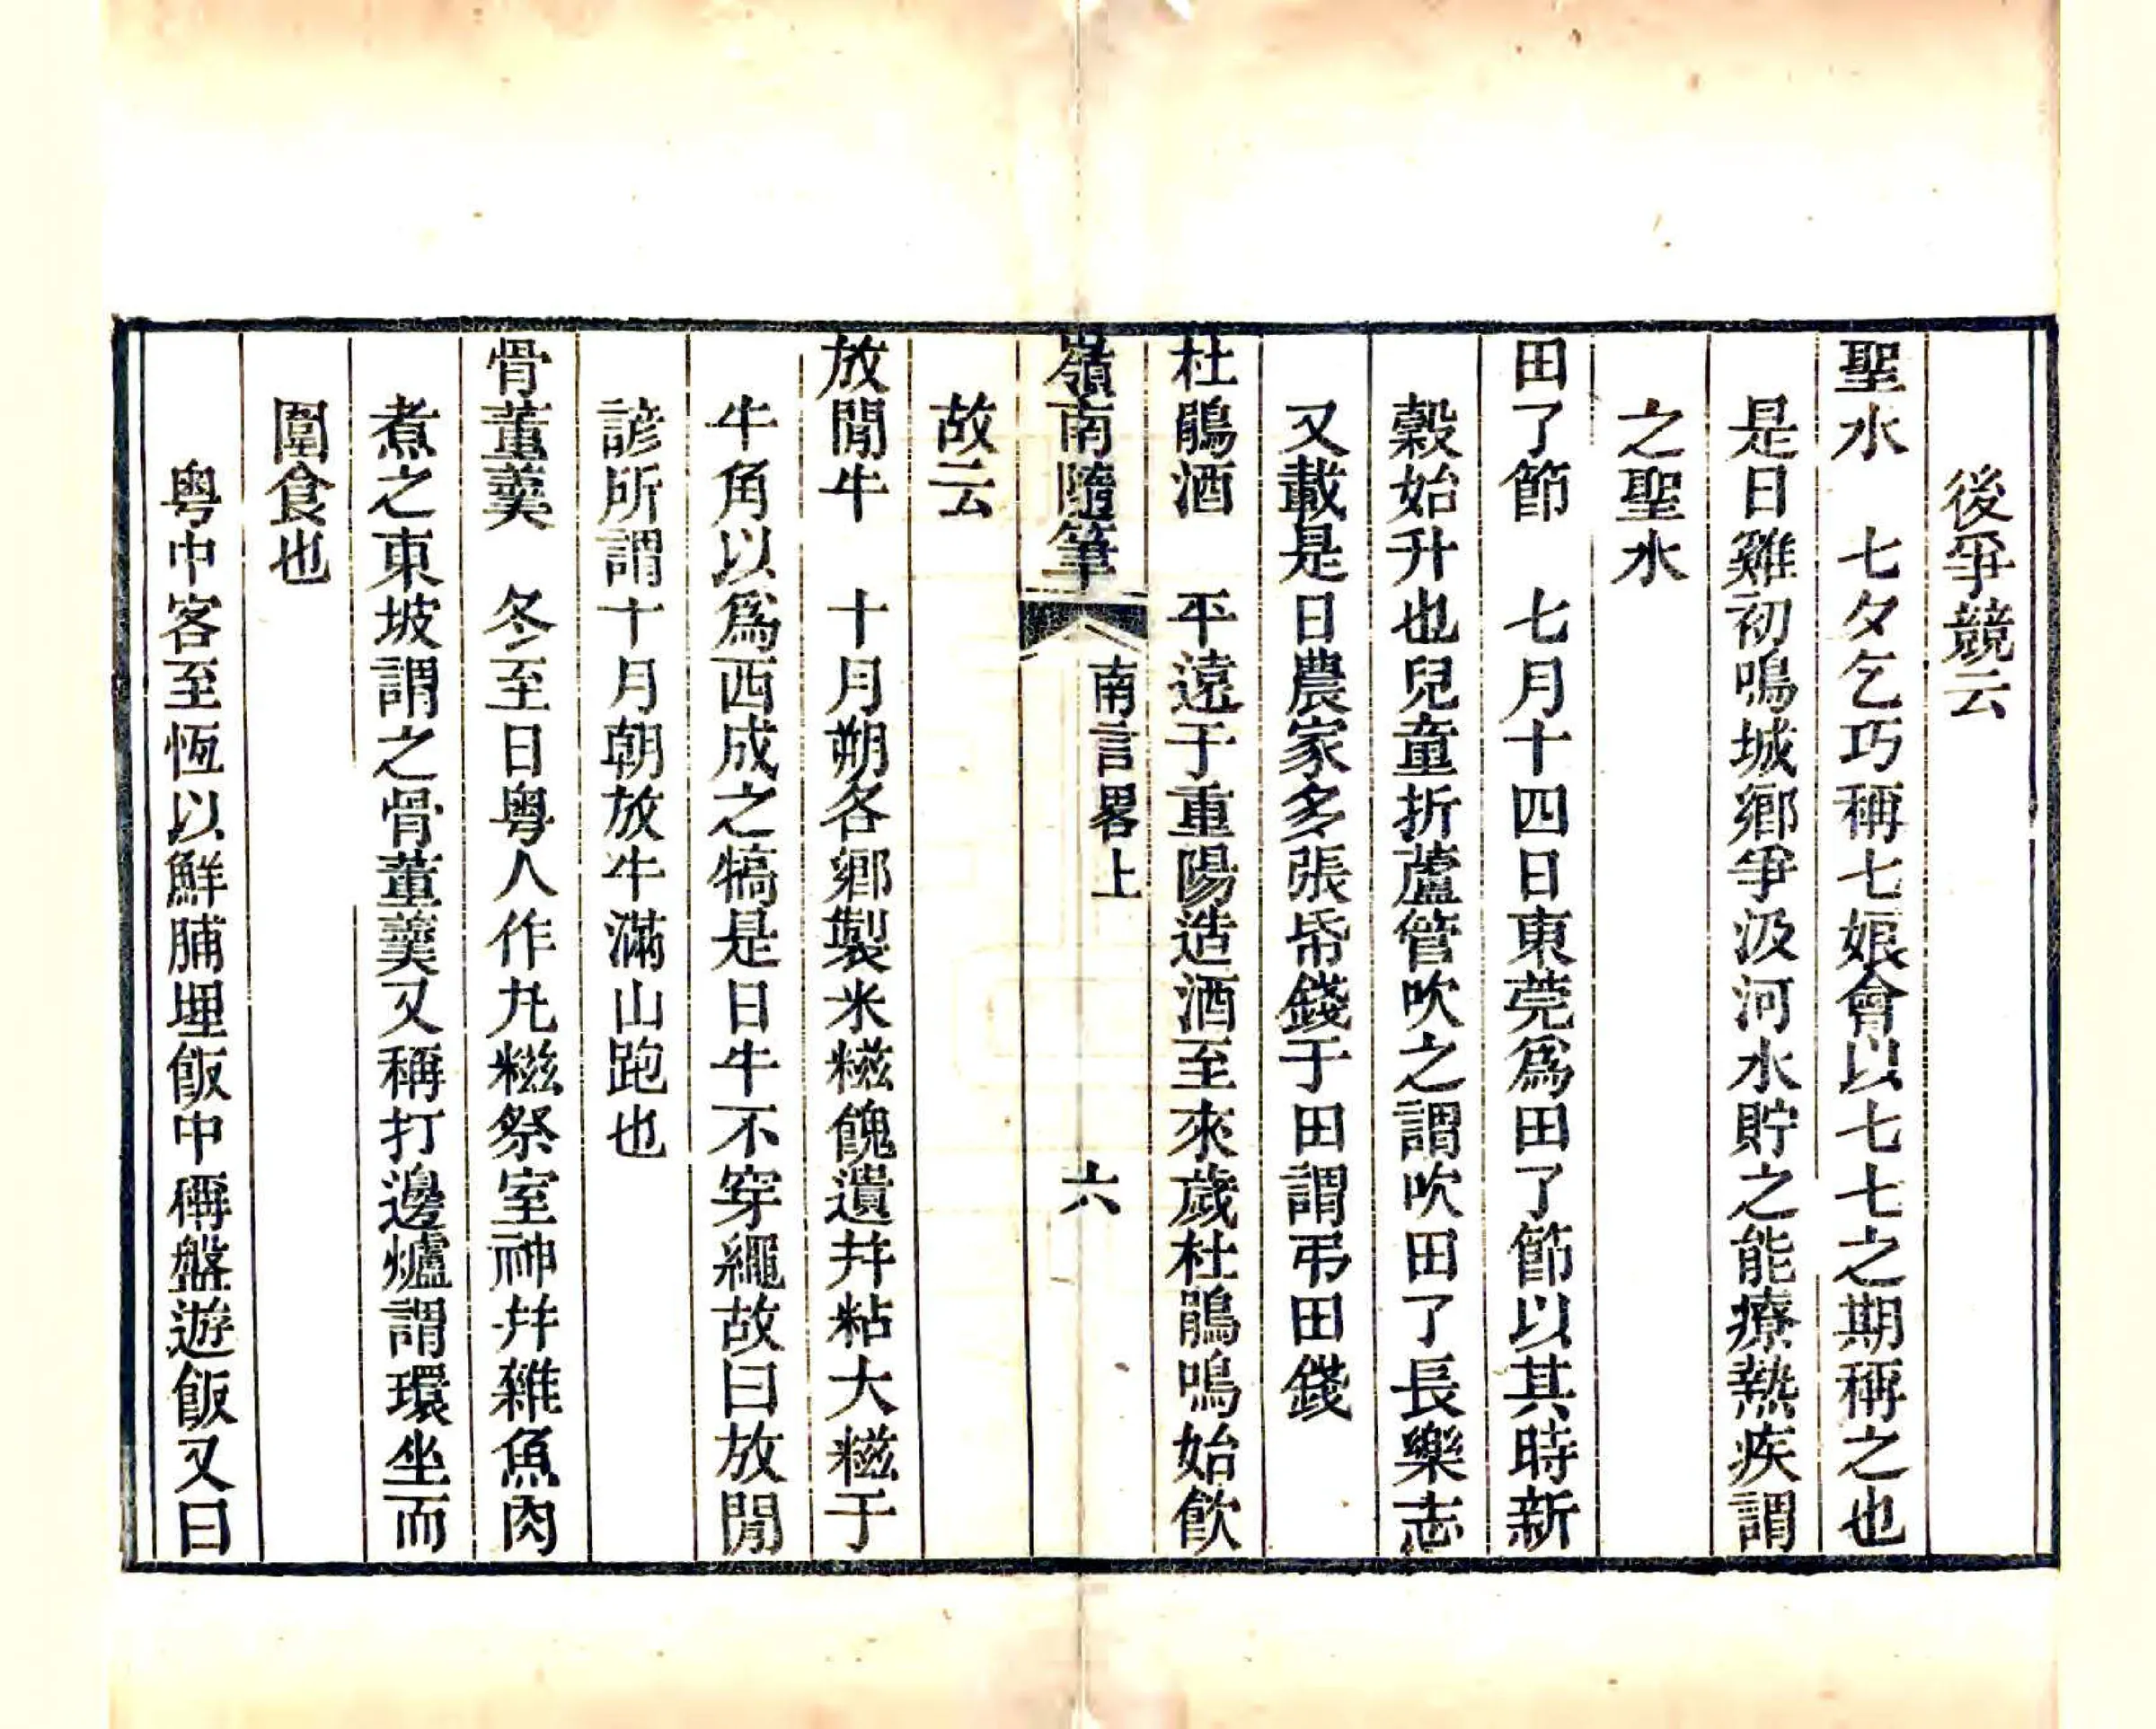 後爭競云
聖水　七夕乞巧稱七娘會以七七之期稱之也
是日雞初鳴城鄉爭汲河水貯之能療熱疾謂
之聖水
田了節　七月十四日東莞爲田了節以其時新
穀始升也兒童折蘆管吹之謂吹田了長樂志
又載是日農家多張帋錢于田謂弔田錢
杜鵑酒　平遠于重陽造酒至來歲杜鵑鳴始飮
嶺南隨筆　南言畧上　六
故云
放閒牛　十月朔各鄉製米糍餽遺并粘大糍于
牛角以爲西成之犒是日牛不穿繩故曰放閒
諺所謂十月朝放牛滿山跑也
骨董羹　冬至日粵人作丸糍祭室神并雜魚肉
煮之東坡謂之骨董羹又稱打邊爐謂環坐而
圍食也
粵中客至恆以鮮脯埋飯中稱盤遊飯又曰